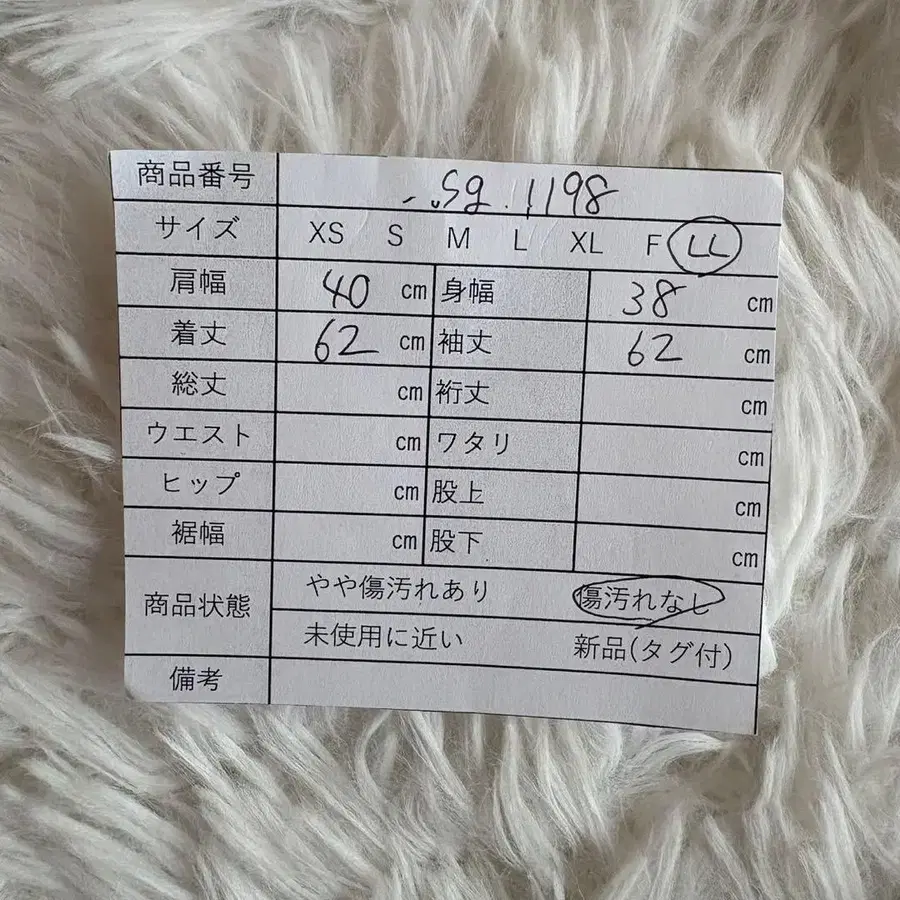 商品番号 Sg 1198
サイズ XS S M L XL F LL
肩幅 40 cm 身幅 38 cm
着丈 62 cm 袖丈 62 cm
総丈 cm 裄丈 cm
ウエスト cm ワタリ cm
ヒップ cm 股上 cm
裾幅 cm 股下 cm
商品状態 やや傷汚れあり 傷汚れなし
未使用に近い 新品(タグ付)
備考